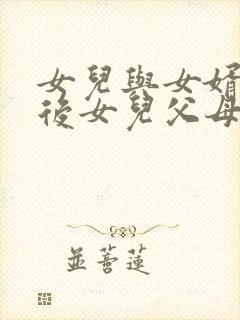 女兒與女婿
後女兒父母
並蒂蓮